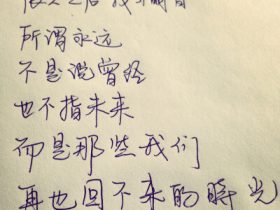 所谓永远
不是说曾经
也不指未来
而是那些我们
再也回不来的時光